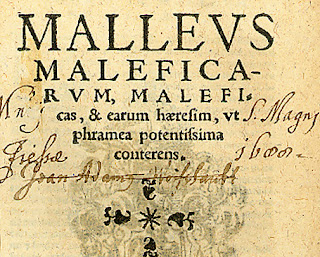 MALLEVS
MALEFICA-
RVM, MALEFI-
cas, & earum hæresim, vt
phramea potentissima
conterens.
S. Magni
Joan Adam
1688